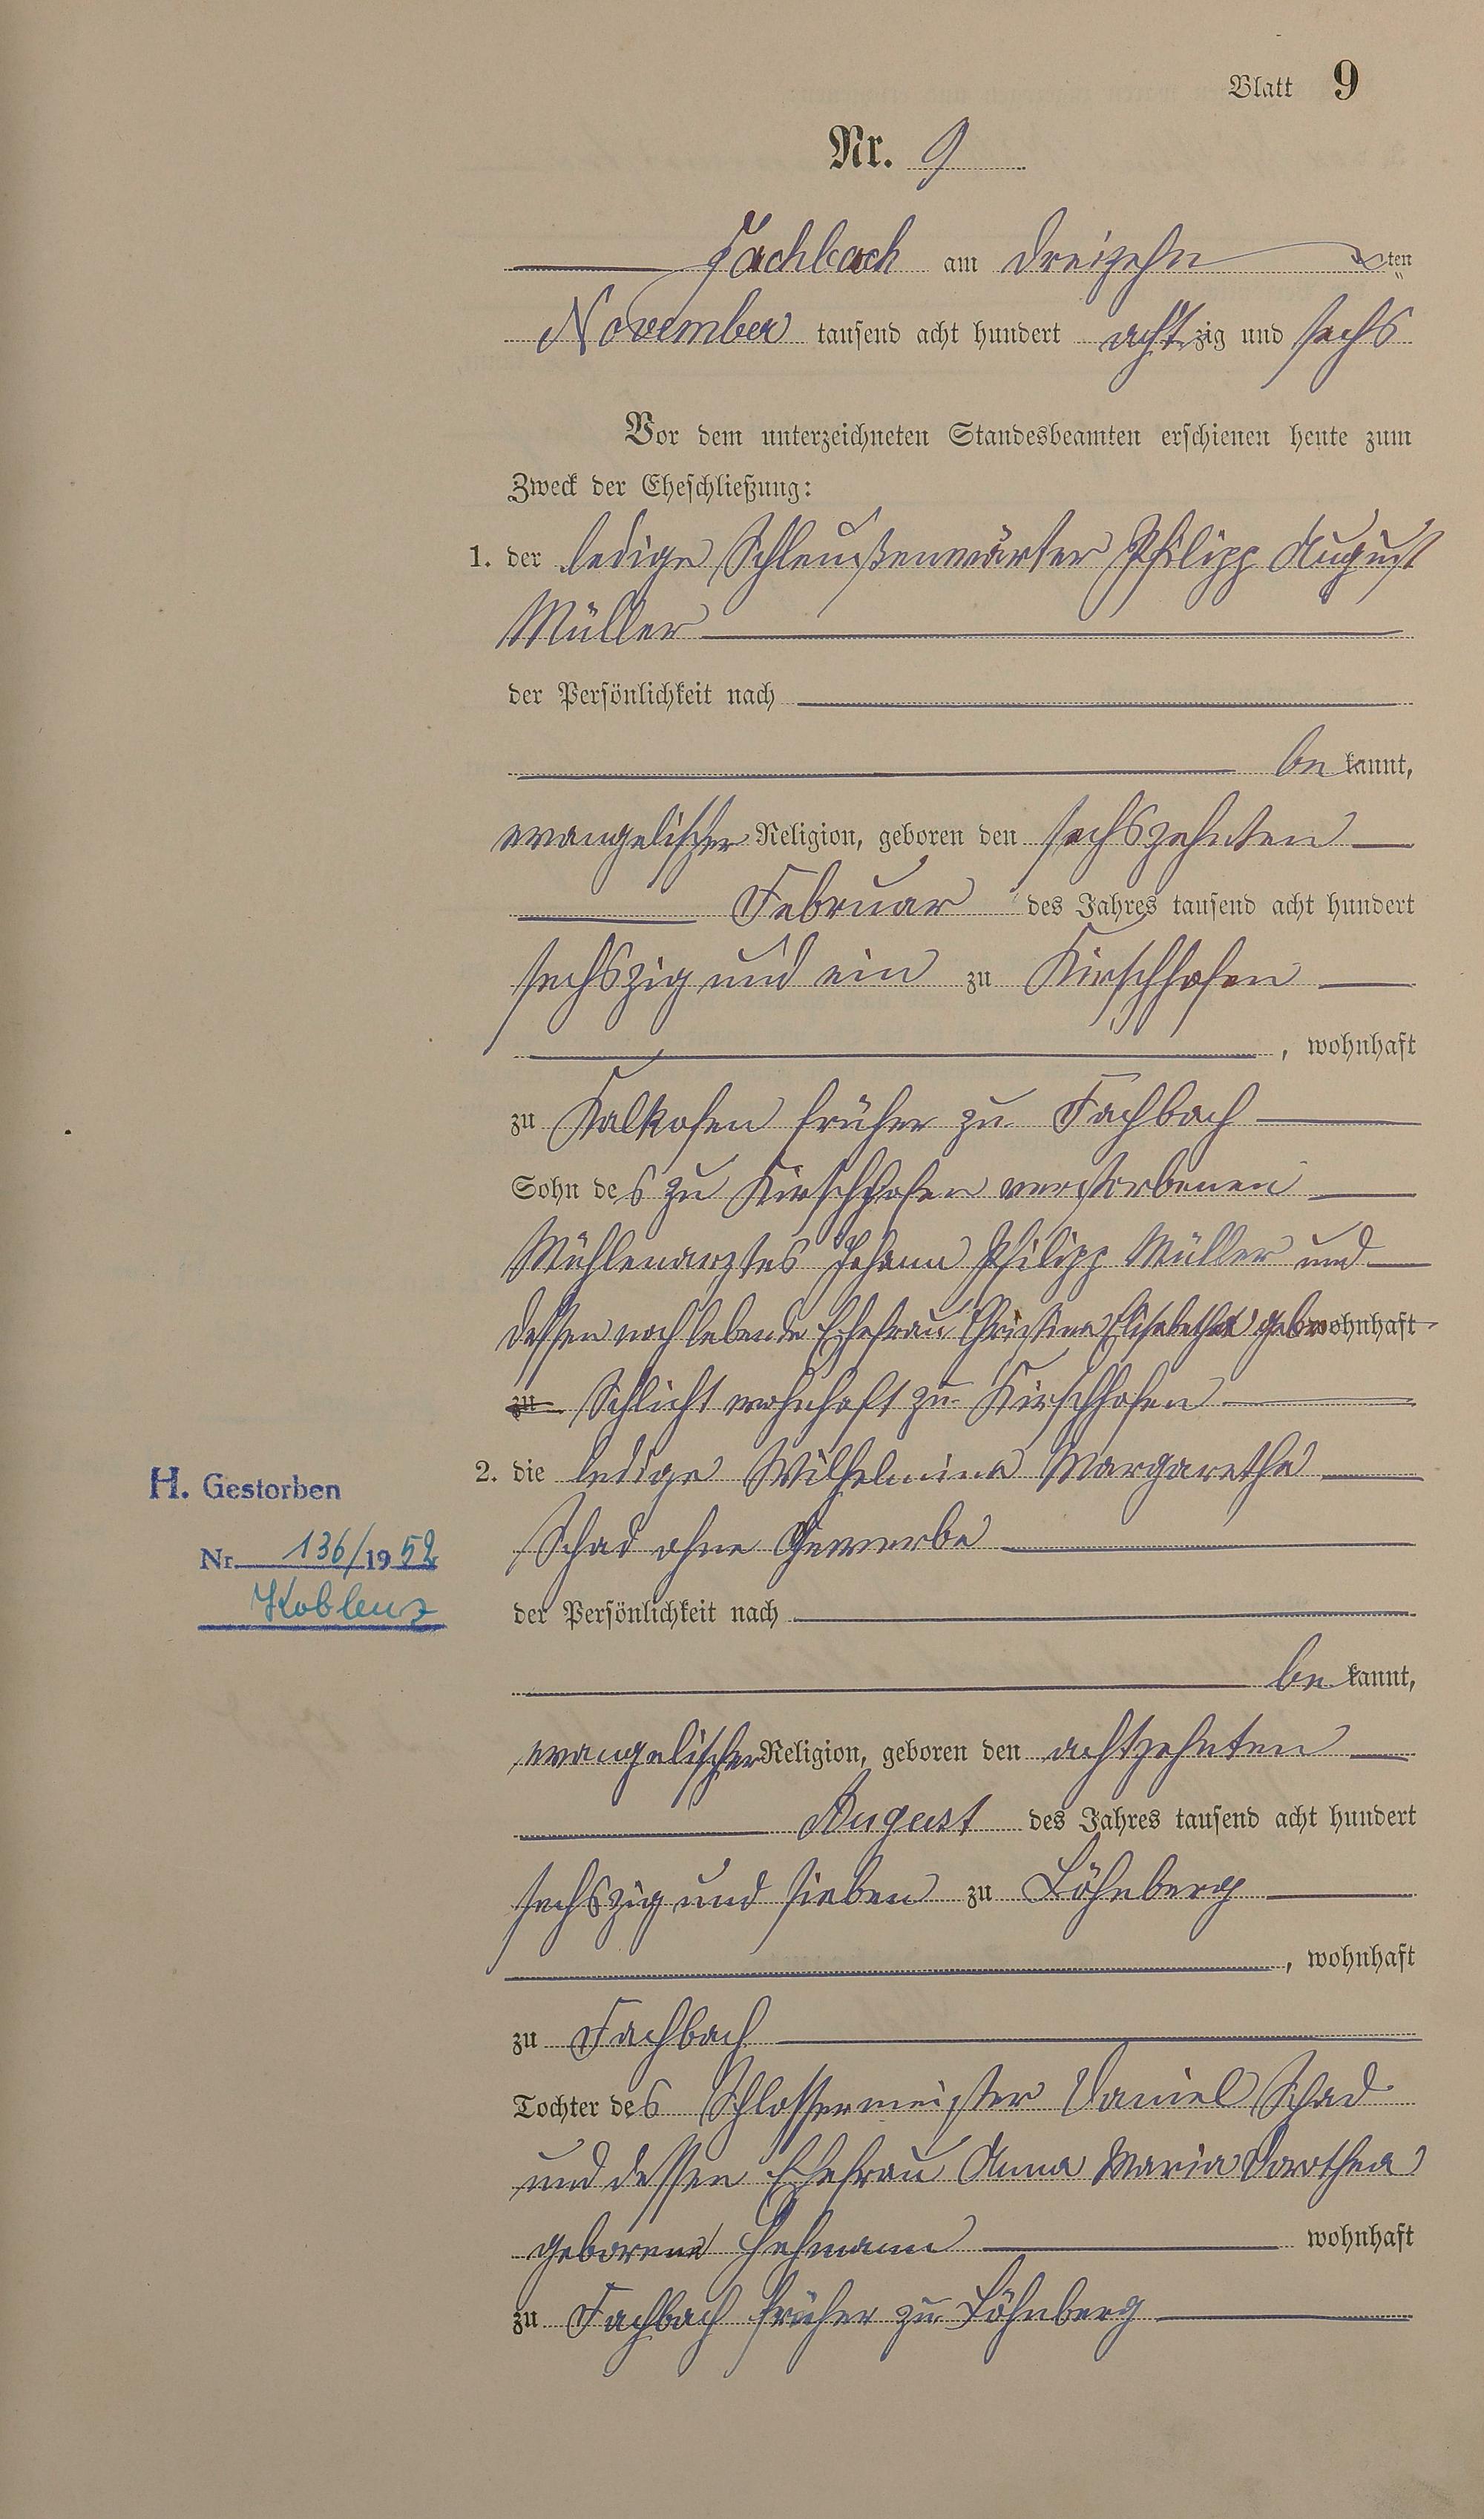 Blatt 9
Nr. 9
Fachbach am dreizehnten
November tausend acht hundert achtzig und sechs
Vor dem unterzeichneten Standesbeamten erschienen heute zum
Zweck der Eheschließung:
1. der ledige Schleußenwärter Philipp August
Müller
der Persönlichkeit nach
bekannt,
evangelischer Religion, geboren den sechszehnten
Februar des Jahres tausend acht hundert
sechszig und ein zu Kirschhofen
, wohnhaft
zu Kalkofen früher zu Fachbach
Sohn des zu Kirschhofen verstorbenen
Mühlenarztes Johann Philipp Müller und
dessen noch lebende Ehefrau Christina Elisabetha geb wohnhaft
zu Schlicht wohnhaft zu Kirschhofen
2. die ledige Wilhelmine Margarethe
Schad ohne Gewerbe
H. Gestorben
Nr. 136/1952
Koblenz
der Persönlichkeit nach
bekannt,
evangelischer Religion, geboren den achtzehnten
August des Jahres tausend acht hundert
sechszig und sieben zu Löhnberg
, wohnhaft
zu Fachbach
Tochter des Schlossermeister Daniel Schad
und dessen Ehefrau Anna Maria Dorothea
geborene wohnhaft
zu Fachbach früher zu Löhnberg